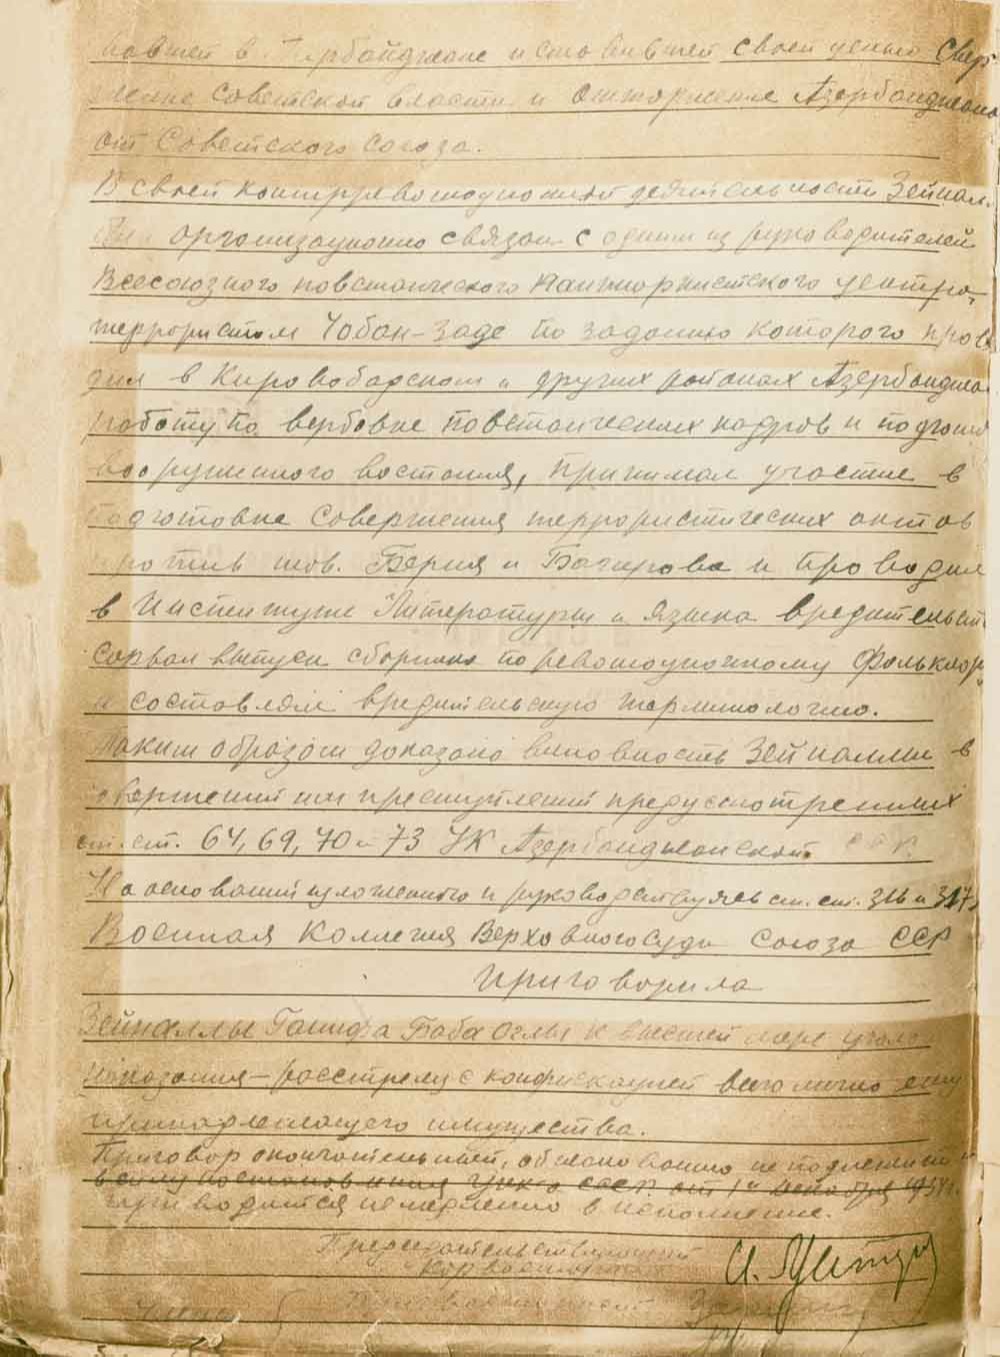 вовшей в Азербайджане и ставившей своей целью свер
жение Советской власти и отторжение Азербайджана
от Советского Союза.
В своей контрреволюционной деятельности Зейнал
лы организационно связан с одним из руководителей
Всесоюзного повстанческого пантюркистского центра,
террористом Чобан-Заде по заданию которого прово
дил в Кировобадском и других районах Азербайджа
работу по вербовке повстанческих кадров и подготов
вооруженного востания, принимал участие в
подготовке совершения террористических актов
против тов. Берия и Багирова и проводил
в Институте Литературы и Языка вредительст
сорвал выпуск сборника по революционному фольклор
и составлял вредительскую терминологию.
Таким образом доказана виновность Зейналлы в
совершении им преступлений предусмотренных
ст. ст. 64, 69, 70 и 73 УК Азербайджанской ССР.
На основании изложенного и руководствуясь ст. ст. 316 и 317,
Военная Коллегия Верховного Суда Союза ССР
приговорила
Зейналлы Ганифа Баба Оглы к высшей мере уголов
наказания – расстрелу с конфискацией всего лично ему
принадлежащего имущества.
Приговор окончательный, обжалованию не подлежит и
в силу постановления ЦИК-а СССР от 1го декабря 1934 г.
приводится немедленно в исполнение.
Председательствующий
Корвоенюрист
Члены